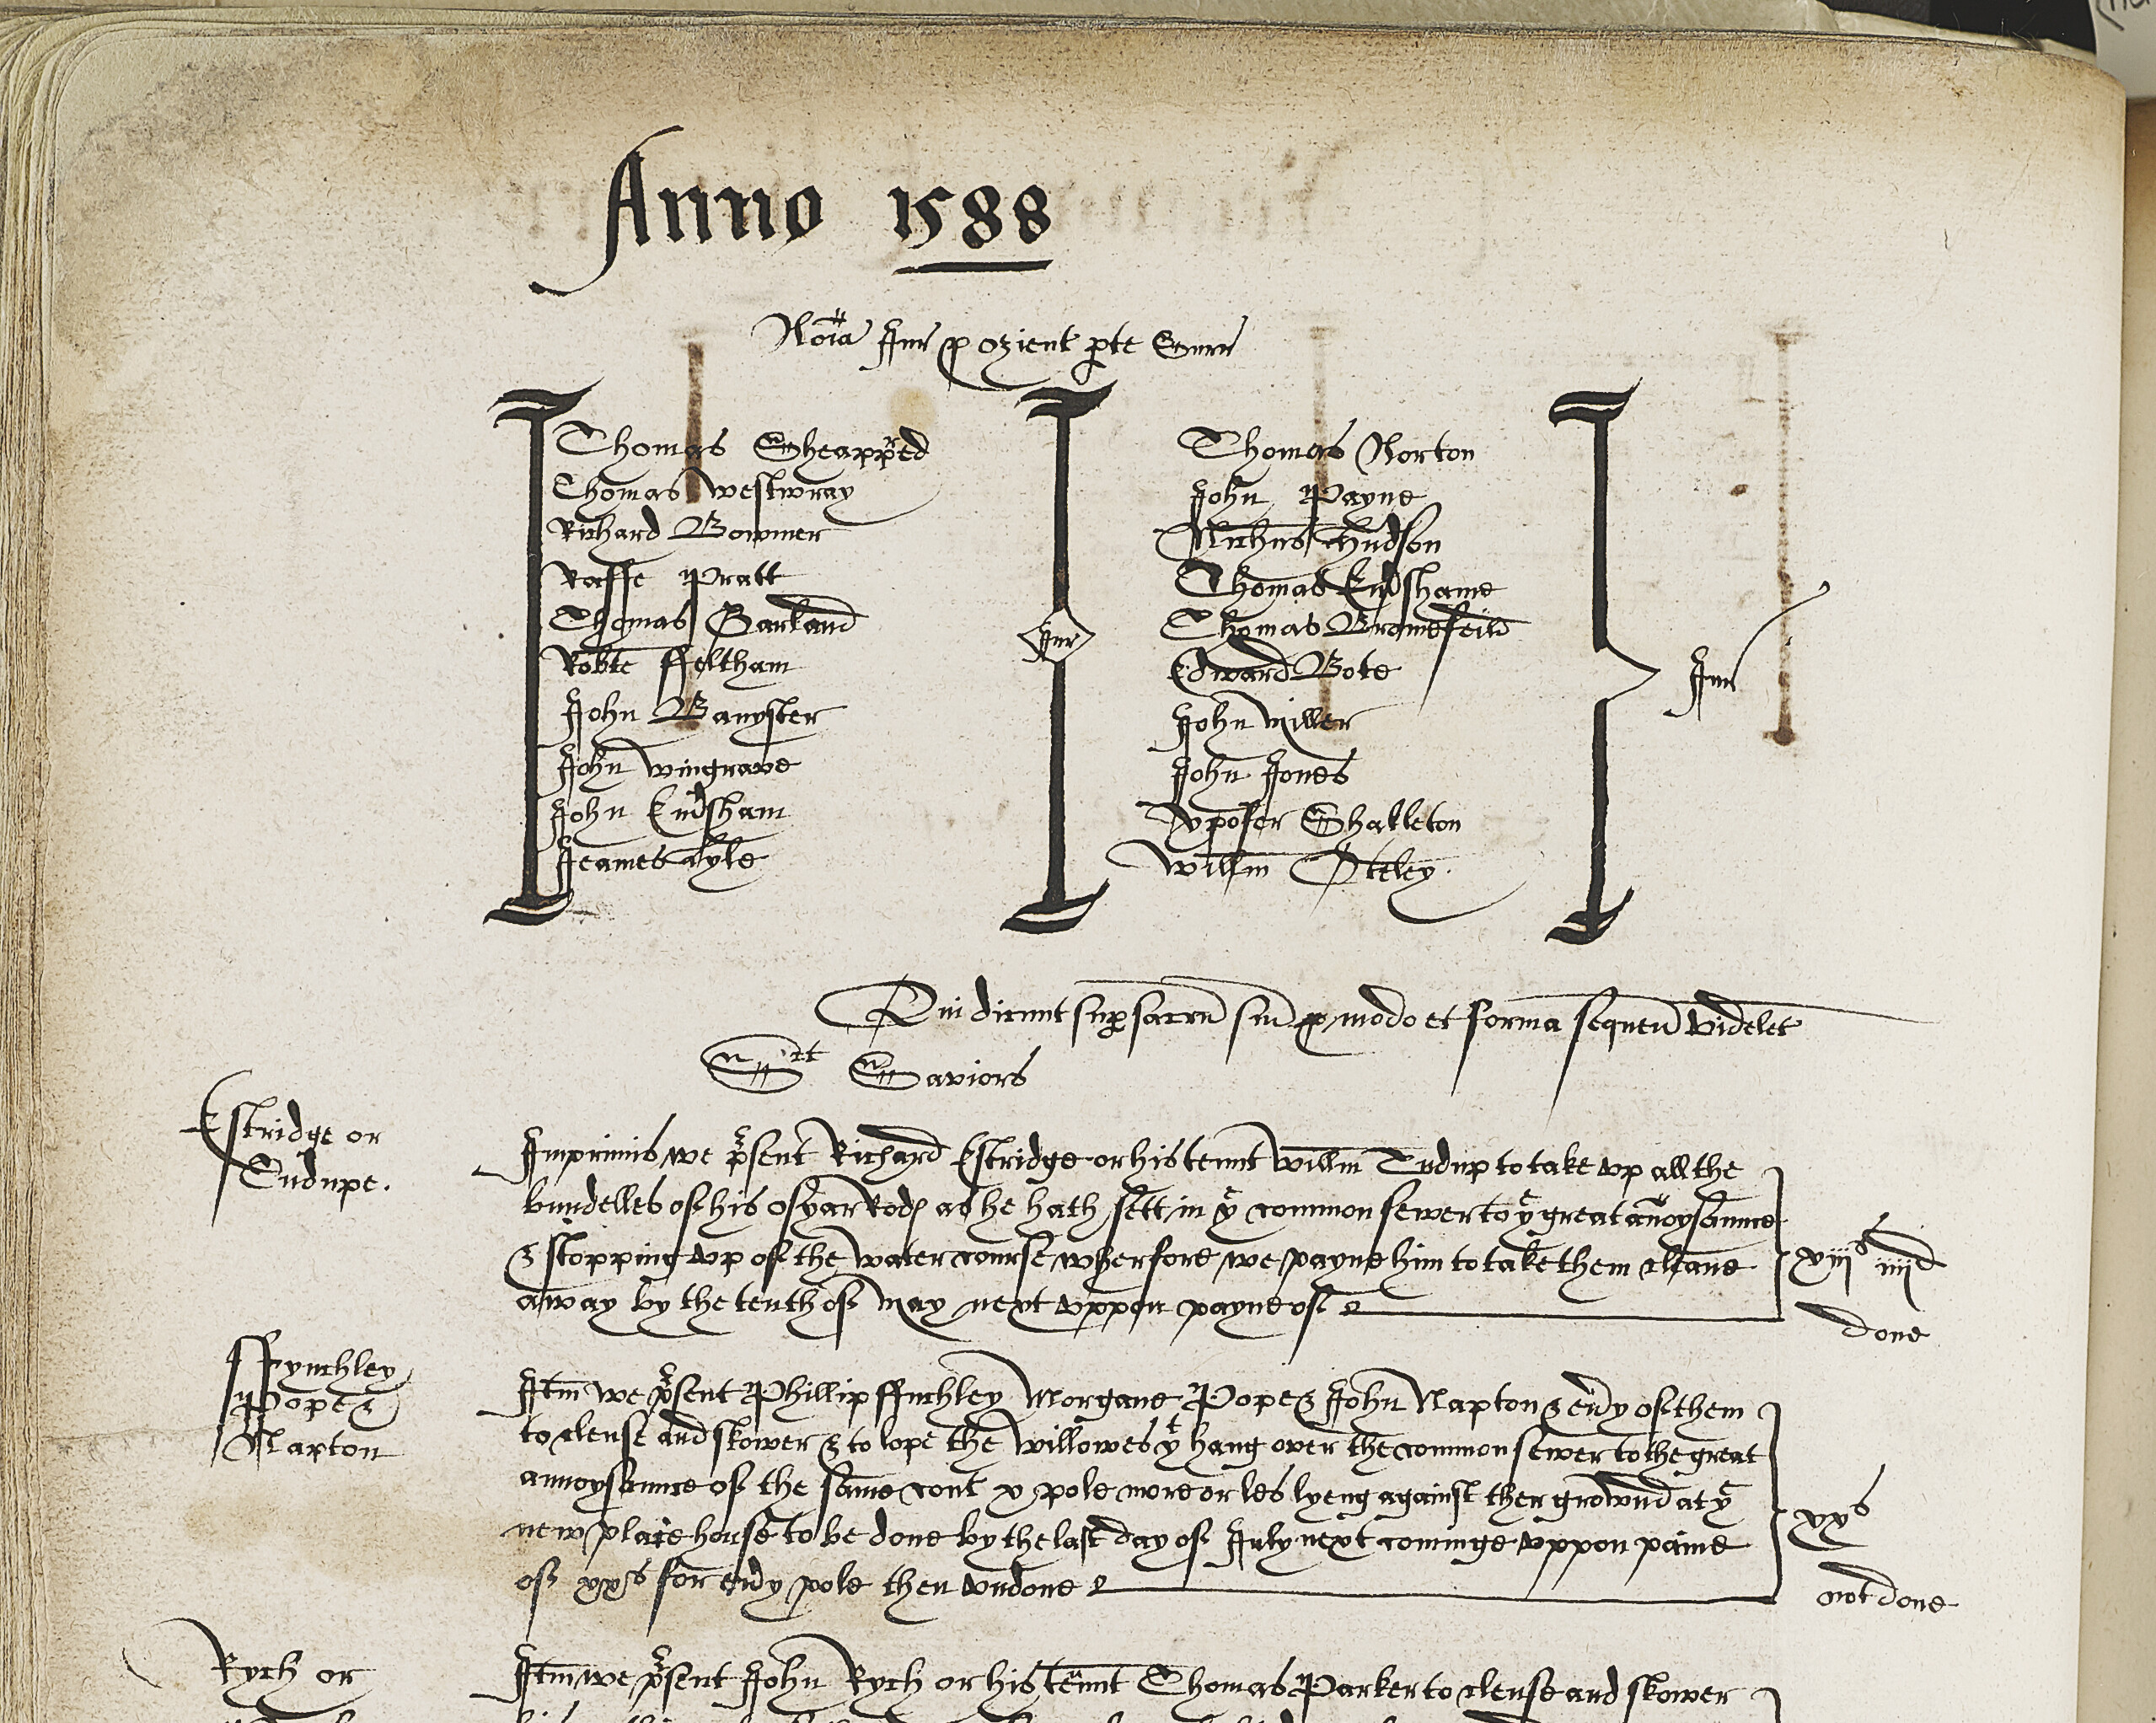 Anno 1588
Noīa Jur p orient pte Surr
Thomas Sheappred
Thomas westwray
Richard Bowmer
Raffe Pratt
Thomas Garland
Robte ffeltham
John Banyster
John wingrave
John Eudsham
Jeames Ayle
Jur
Thomas Norton
John Payne
Nichus Hudson
Thomas Eudshame
Thomas Bromefeild
Edward Bote
John Miller
John Jones
Xpofer Shakleton
Willm Oteley
Jur
Qui dicunt sup sacrm suu p modo et forma sequen videlet
Snt Saviors
Estridge or
Tudupe.
Imprimis we psent Richard Estridge or his tennt willm Tudup to take vp all the
bundelles of his osyar Rod as he hath sett in ye common sewer to ye great anoysaunce
& stopping vp of the water course wherfore we payne him to take them cleane
away by the tenth of May next vppon payne of
xiijs iiijd
done
ffynchley
Pope &
Napton
Itm we psent Phillip ffinchley Morgane Pope & John Napton & evy of them
to clense and skower & to lope the willowes yt hang over the common sewer to the great
annoysaunce of the same cont x pole more or les lyeng against ther grownd at ye
new place house to be done by the last day of July next cominge vppon paine
of xxs for evy pole then vndone
xxs
not done
Rych or
Itm we psent John Rych or his tennt Thomas Parker to clense and skower